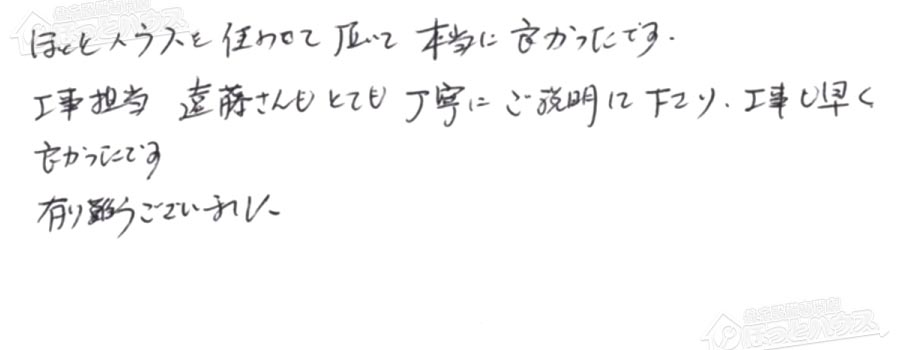 ほっとハウスを任わせて頂いて 本当に良かったです.
工事担当 遠藤さんもとても丁寧にご説明に下さり、工事も早く
良かったです
有り難うございました
ほっとハウス